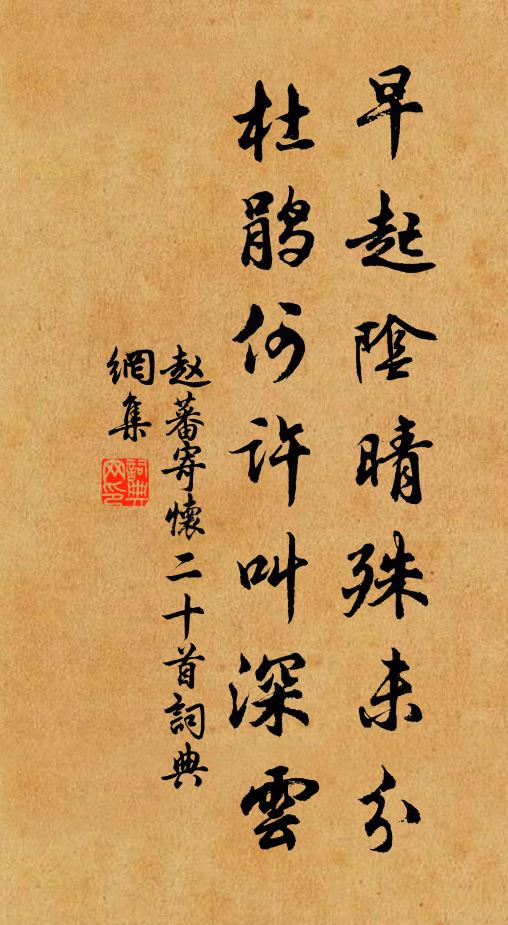 早起陰晴殊未分
杜鹃何許叫深雲
赵蕃寄懷二十首詞典
網集
詞典网印